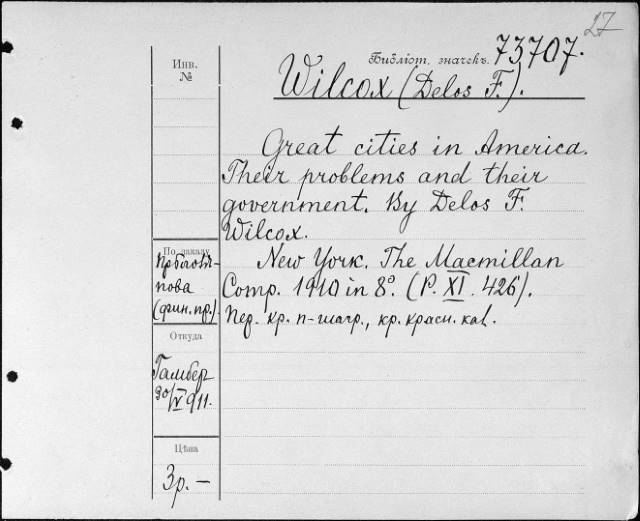 27
Библіот. значекъ. 73707.
Wilcox (Delos F.).
Инв.
№
Great cities in America.
Their problems and their
government. By Delos F.
Wilcox.
New York. The Macmillan
Comp. 1910 in 8º. (P. XI. 426).
Пер. кр. п-шагр., кр. красн. кал.
По заказу
пова
(фин. пр.).
Откуда
30/V 911.
Цѣна
3р.—